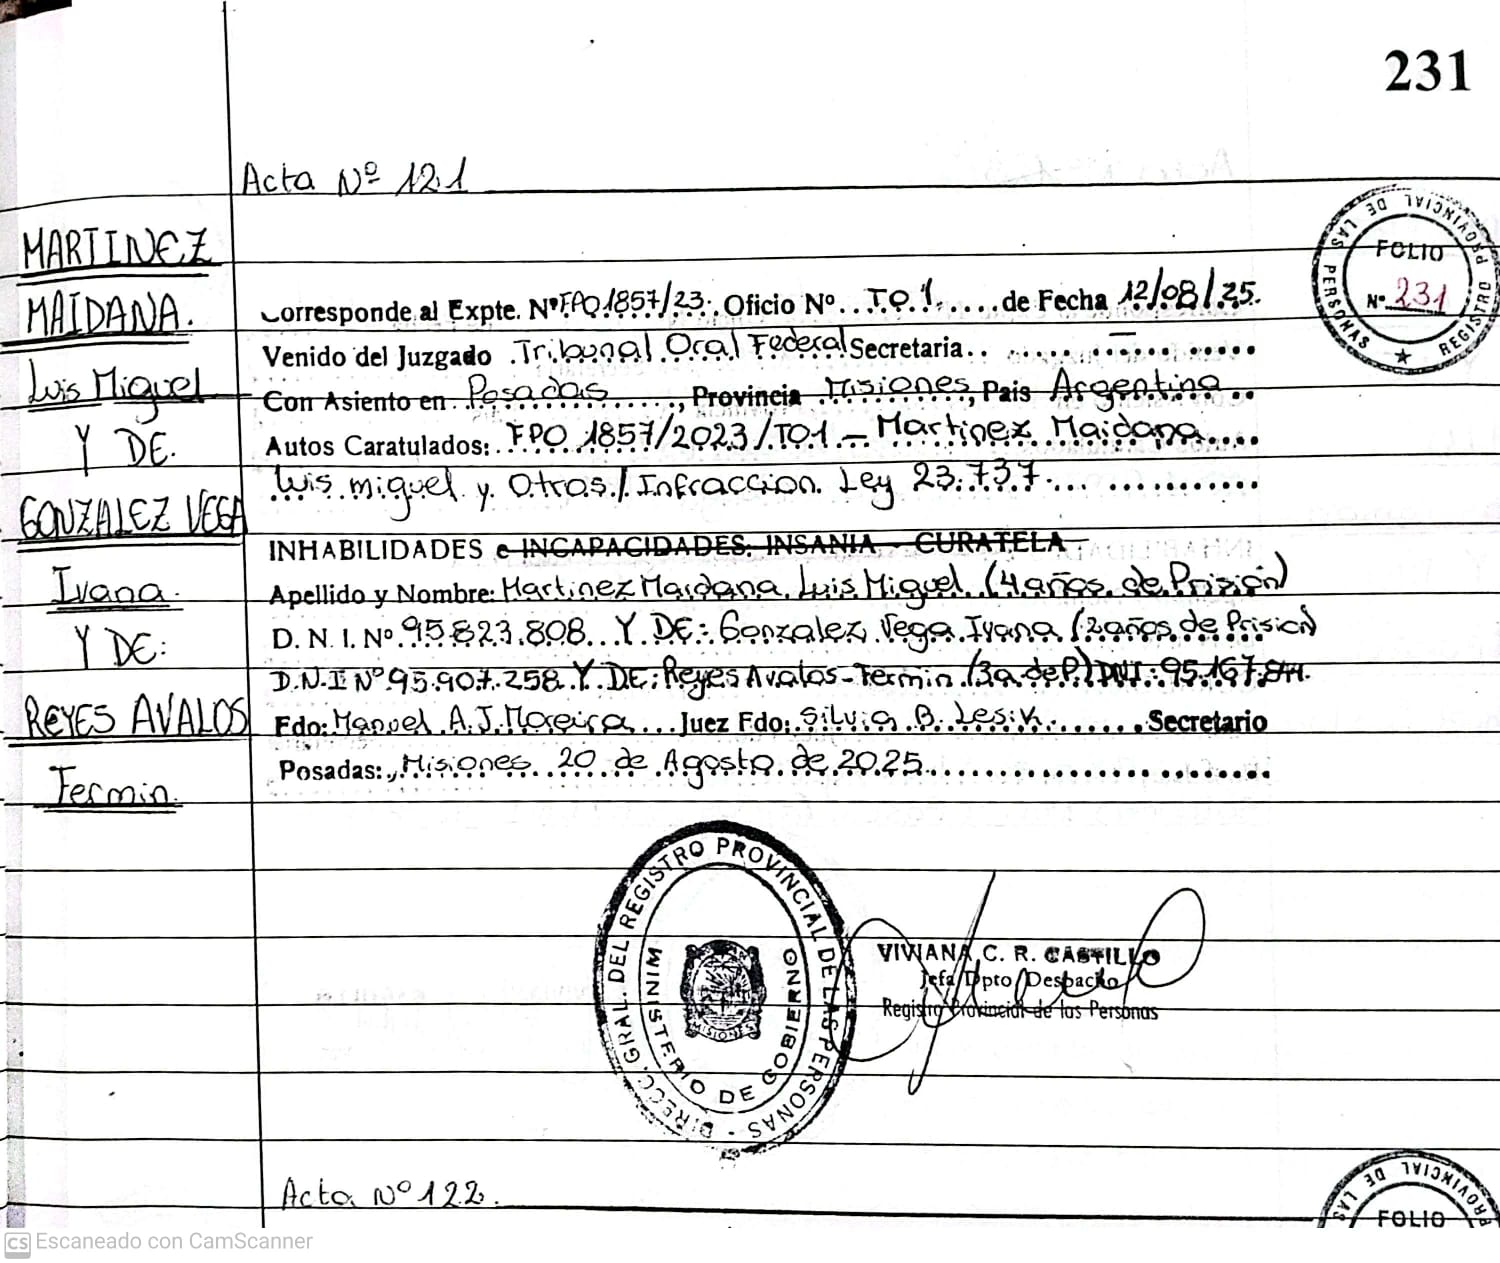 231
Acta Nº 121
MARTINEZ
MAIDANA.
Luis Miguel
Y DE.
GONZALEZ VEGA
Ivana.
Y DE:
REYES AVALOS
Fermin.
Corresponde al Expte. Nº FPO 1857/23. Oficio Nº TO 1. de Fecha 12/08/25.
Venido del Juzgado Tribunal Oral Federal Secretaria.. —
Con Asiento en Posadas, Provincia Misiones, Pais Argentina
Autos Caratulados: FPO 1857/2023/TO1 - Martinez Maidana
Luis miguel y Otros./ Infraccion Ley 23.737.
INHABILIDADES e INCAPACIDADES: INSANIA - CURATELA
Apellido y Nombre: Martinez Maidana, Luis Miguel. (4 años de Prisión)
D. N. I. Nº 95.823.808. Y DE: Gonzalez Vega Ivana (2 años de Prisión)
D.N.I Nº 95.907.258 Y DE: Reyes Avalos - Fermin (3a. de P.) DNI: 95.167.844.
Fdo: Manuel A. J. Moreira Juez Fdo: Silvia B. Lesik. Secretario
Posadas:, Misiones 20 de Agosto de 2025
REGISTRO PROVINCIAL DE LAS PERSONAS
FOLIO
Nº 231
DIRECC. GRAL. DEL REGISTRO PROVINCIAL DE LAS PERSONAS -
MINISTERIO DE GOBIERNO
MISIONES
VIVIANA C. R. CASTILLO
Jefa Dpto Despacho
Registro Provincial de las Personas
Acta Nº 122.
PROVINCIAL DE LAS
FOLIO
CS Escaneado con CamScanner